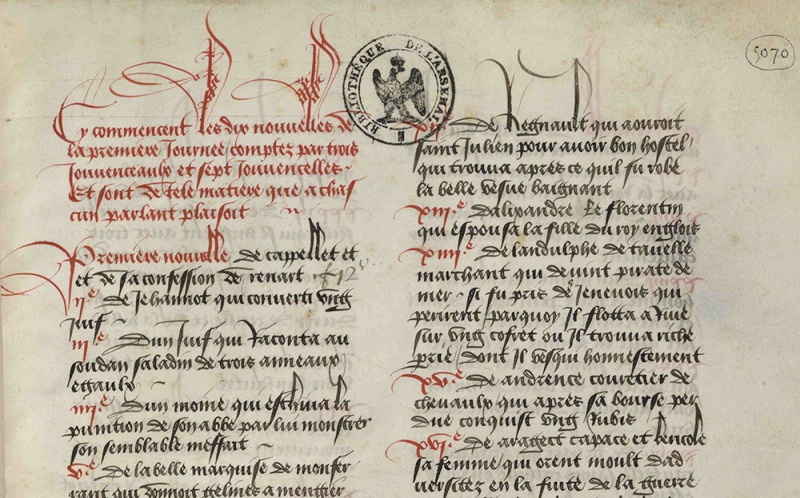 5070
BIBLIOTHÈQUE DE L'ARSENAL
Cy commencent les dix nouvelles de
la premiere Journee comptez par trois
Jouvenceaulx et sept Jouvencelles
Et sont de tele matiere que a chas
cun parlant plaisoit
Premiere nouvelle de cappellet et
et de sa confession de renart
ii.e de Jehannot qui converti vng
Juif
iii.e Dun Juif qui Raconta au
soudan saladin de trois anneaux
egaulx
iiii.e Dun moine qui eschiua la
punition de son abbe par lui monstrer
son semblable meffait
v.e De la belle marquise de monfer
rant qui donnoit gelines a mengier
xii.e De Regnault qui aouroit
saint Julien pour avoir bon hostel
qui trouva apres ce quil fu robe
la belle vesue baignant
xiii.e dalixandre le florentin
qui espousa la fille du roy englois
xiiii.e de landulphe de ravelle
marchant qui deuint pirate de
mer si fu pris de Jenevois qui
perirent parquoy Il flotta a Rive
sur vng cofret ou Il trouva riche
prie dont Il vesqui honnestement
xv.e De andrence couretier de
chevaulx qui apres sa bourse per
due conquist vng Rubis
xvi.e De aragect capace et
sa femme qui orent moult dad
versitez en la fuite de la guerre